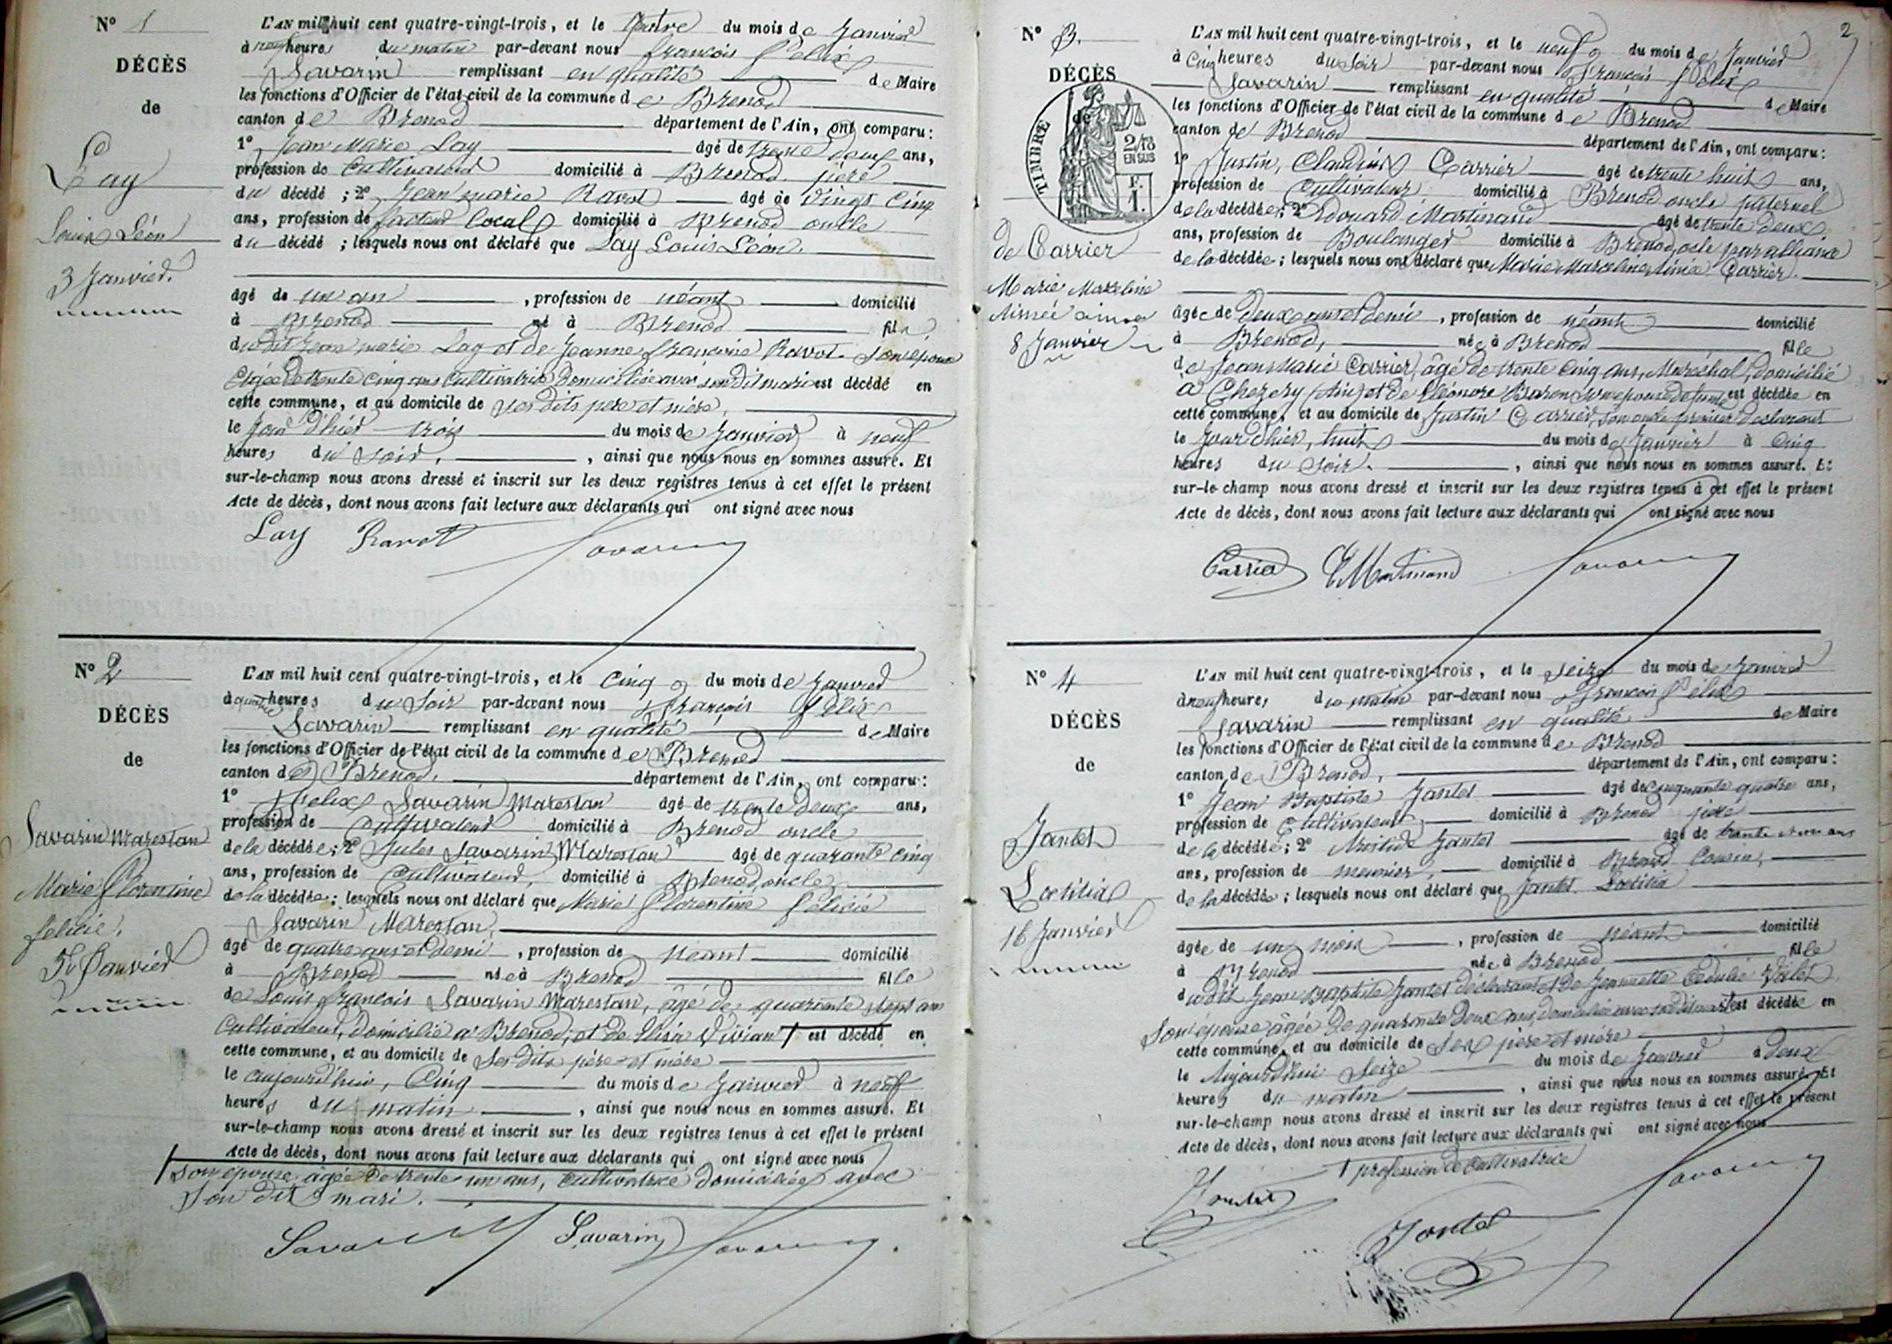 N° 1
DÉCÈS
de
Lay
Louis Léon
3 Janvier.
L'AN mil huit cent quatre-vingt-trois, et le quatre du mois de Janvier
à neuf heures du matin par-devant nous François Félix
Savarin remplissant en qualité de Maire
les fonctions d'Officier de l'état civil de la commune de Brenod
canton de Brenod département de l'Ain, ont comparu :
1° Jean Marie Lay âgé de trente deux ans,
profession de Cultivateur domicilié à Brenod père
du décédé ; 2° Jean marie Ravot âgé de vingt cinq
ans, profession de facteur local domicilié à Brenod oncle
du décédé ; lesquels nous ont déclaré que Lay Louis Léon.
âgé de un an , profession de néant domicilié
à Brenod né à Brenod fils
du dit Jean marie Lay et de Jeanne françoise Ravot son épouse
âgée de trente cinq ans cultivatrice domiciliée avec son dit mari est décédé en
cette commune, et au domicile de ses dits père et mère,
le jour d'hier trois du mois de Janvier à neuf
heures du soir, , ainsi que nous nous en sommes assuré. Et
sur-le-champ nous avons dressé et inscrit sur les deux registres tenus à cet effet le présent
Acte de décès, dont nous avons fait lecture aux déclarants qui ont signé avec nous
Lay Ravot Savarin
N° 2
DÉCÈS
de
Savarin Marestan
Marie Florentine
félicie.
5 Janvier
L'AN mil huit cent quatre-vingt-trois, et le cinq du mois de Janvier
à quatre heures du soir par-devant nous François Félix
Savarin remplissant en qualité de Maire
les fonctions d'Officier de l'état civil de la commune de Brenod
canton de Brenod, département de l'Ain, ont comparu :
1° Félix Savarin Marestan âgé de trente deux ans,
profession de Cultivateur domicilié à Brenod oncle
de la décédée ; 2° Jules Savarin Marestan âgé de quarante cinq
ans, profession de Cultivateur, domicilié à Brenod, oncle
de la décédée ; lesquels nous ont déclaré que Marie Florentine Félicie
Savarin Marestan,
âgé de quatre ans et demi , profession de néant domicilié
à Brenod née à Brenod fille
de Louis françois Savarin Marestan, âgé de quarante sept ans
Cultivateur, domicilié à Brenod, et de Elisa Vivian est décédé en
cette commune, et au domicile de ses dits père et mère
le aujourd'hui, Cinq du mois de Janvier à neuf
heures du matin , ainsi que nous nous en sommes assuré. Et
sur-le-champ nous avons dressé et inscrit sur les deux registres tenus à cet effet le présent
Acte de décès, dont nous avons fait lecture aux déclarants qui ont signé avec nous
son épouse, âgée de trente un ans, cultivatrice domiciliée avec
son dit mari.
Savarin Savarin Savarin
2
N° 3.
DÉCÈS
de
TIMBRE
2/10
EN SUS
F.
1.
de Carrier
Marie Marceline
Aimée
8 Janvier
L'AN mil huit cent quatre-vingt-trois, et le neuf du mois de Janvier
à Cinq heures du soir par-devant nous François Félix
Savarin remplissant en qualité de Maire
les fonctions d'Officier de l'état civil de la commune de Brenod
canton de Brenod département de l'Ain, ont comparu :
1° Justin, Claudius Carrier âgé de trente huit ans,
profession de Cultivateur domicilié à Brenod oncle paternel
de la décédée ; 2° Edouard Martinand âgé de trente deux
ans, profession de Boulanger domicilié à Brenod, oncle par alliance
de la décédée ; lesquels nous ont déclaré que Marie Marceline Aimée Carrier.
âgée de deux ans et demi , profession de néant domicilié
à Brenod, née à Brenod fille
de Jean Marie Carrier, âgé de trente cinq ans, Maréchal, domicilié
à Chezery (Ain) et de Eléonore Baron son épouse défunte est décédée en
cette commune, et au domicile de Justin Carrier, son oncle premier déclarant
le jour d'hier, huit du mois de Janvier à Cinq
heures du soir. , ainsi que nous nous en sommes assuré. Et
sur-le-champ nous avons dressé et inscrit sur les deux registres tenus à cet effet le présent
Acte de décès, dont nous avons fait lecture aux déclarants qui ont signé avec nous
Carrier E Martinand Savarin
N° 4
DÉCÈS
de
Jantet
Lœtitia
16 Janvier
L'AN mil huit cent quatre-vingt-trois, et le seize du mois de Janvier
à neuf heures du matin par-devant nous François Félix
Savarin remplissant en qualité de Maire
les fonctions d'Officier de l'état civil de la commune de Brenod
canton de Brenod, département de l'Ain, ont comparu :
1° Jean Baptiste Jantet âgé de cinquante quatre ans,
profession de Cultivateur domicilié à Brenod père
de la décédée ; 2° Aristide Jantet âgé de trente et un ans
ans, profession de meunier, domicilié à Brenod Cousin,
de la décédée ; lesquels nous ont déclaré que Jantet Lœtitia
âgée de un mois , profession de néant domicilié
à Brenod née à Brenod fille
du dit Jean Baptiste Jantet déclarant et de Jeannette
son épouse âgée de quarante deux ans, domiciliée avec son dit mari est décédée en
cette commune, et au domicile de ses père et mère
le Aujourd'hui Seize du mois de Janvier à deux
heures du matin , ainsi que nous nous en sommes assuré. Et
sur-le-champ nous avons dressé et inscrit sur les deux registres tenus à cet effet le présent
Acte de décès, dont nous avons fait lecture aux déclarants qui ont signé avec nous
profession de cultivatrice
Jantet Jantet Savarin